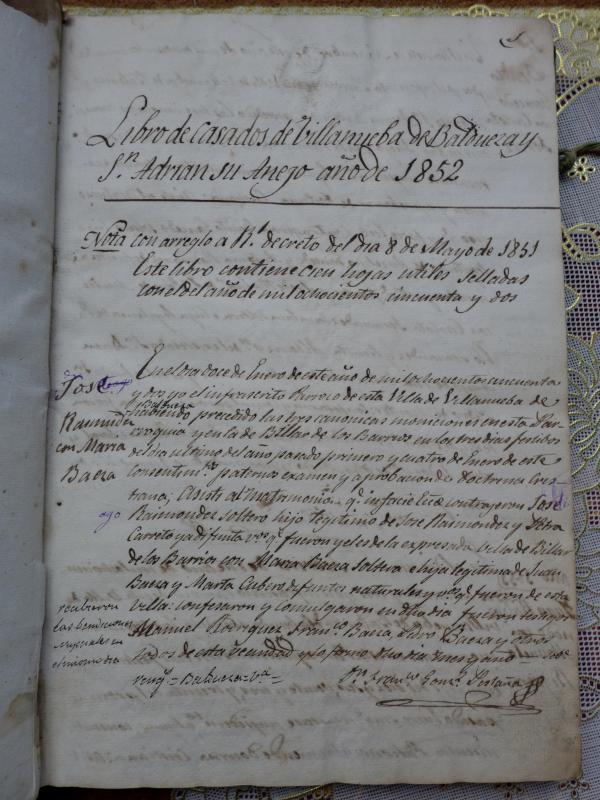 1
Libro de Casados de Villanueba de Balduezay
Sn. Adrian su Anejo año de 1852
Nota con arreglo a Rl. decreto del dia 8 de Mayo de 1851
Este libro contiene cien hojas utiles selladas
con el del año de mil ochocientos cincuenta y dos
En el dia doce de Enero de este año de mil ochocientos cincuenta
y dos yo el infrascrito Parroco de esta Villa de Villanueba de
Baldueza
habiendo precedido las tres canonicas moniciones en esta Par-
roquia y en la de Billar de los Barrios en los tres dias festibos
del dia ultimo del año pasado primero y cuatro de Enero de este
consentimto. paterno examen y aprobacion de doctrina cris-
tiana; Asisti al Matrimonio qe. in facie Ecce. contrajeron José
Raimondez soltero hijo legitimo de Jose Raimondez y
Carreto ya difunta vos. qe. fueron y el es de la expresada Villa de Billar
de los Barrios con Maria Baeza soltera e hija legitima de Juan
Baeza y Marta Cubero difuntos naturales y vos. qe. fueron de esta
villa: confesaron y comulgaron en dho dia fueron testigos
Manuel Rodriguez Franco. Baeza, Pedro Baeza y otros
todos de esta vecindad y lo firmo dho dia mes y año
rengs.=Baldueza=Va.=
Dn. Franco. Gonz.
José
Raimundez
con Maria
Baeza
ego
recibieron
las bendiciones
nupciales en
el mismo dia